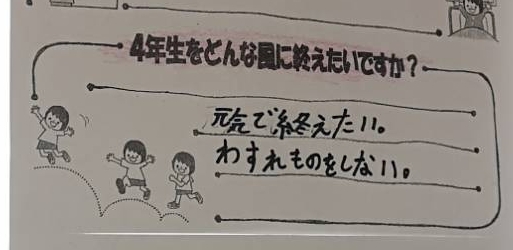 4年生をどんな風に終えたいですか？
元気で終えたい。
わすれものをしない。